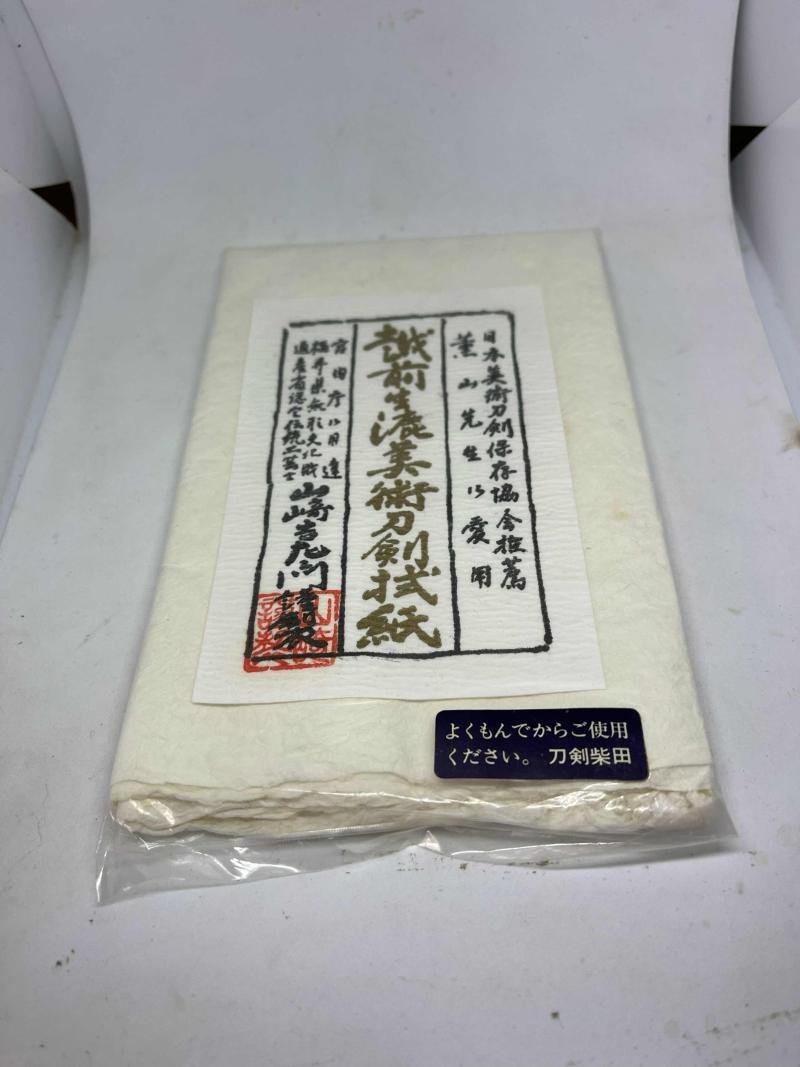 日本美術刀剣保存協会推薦
薫山先生御愛用
越前生漉美術刀剣拭紙
宮内庁御用達
福井県無形文化財
通産省認定伝統工芸士
山崎吉左衛門謹製
よくもんでからご使用
ください。 刀剣柴田